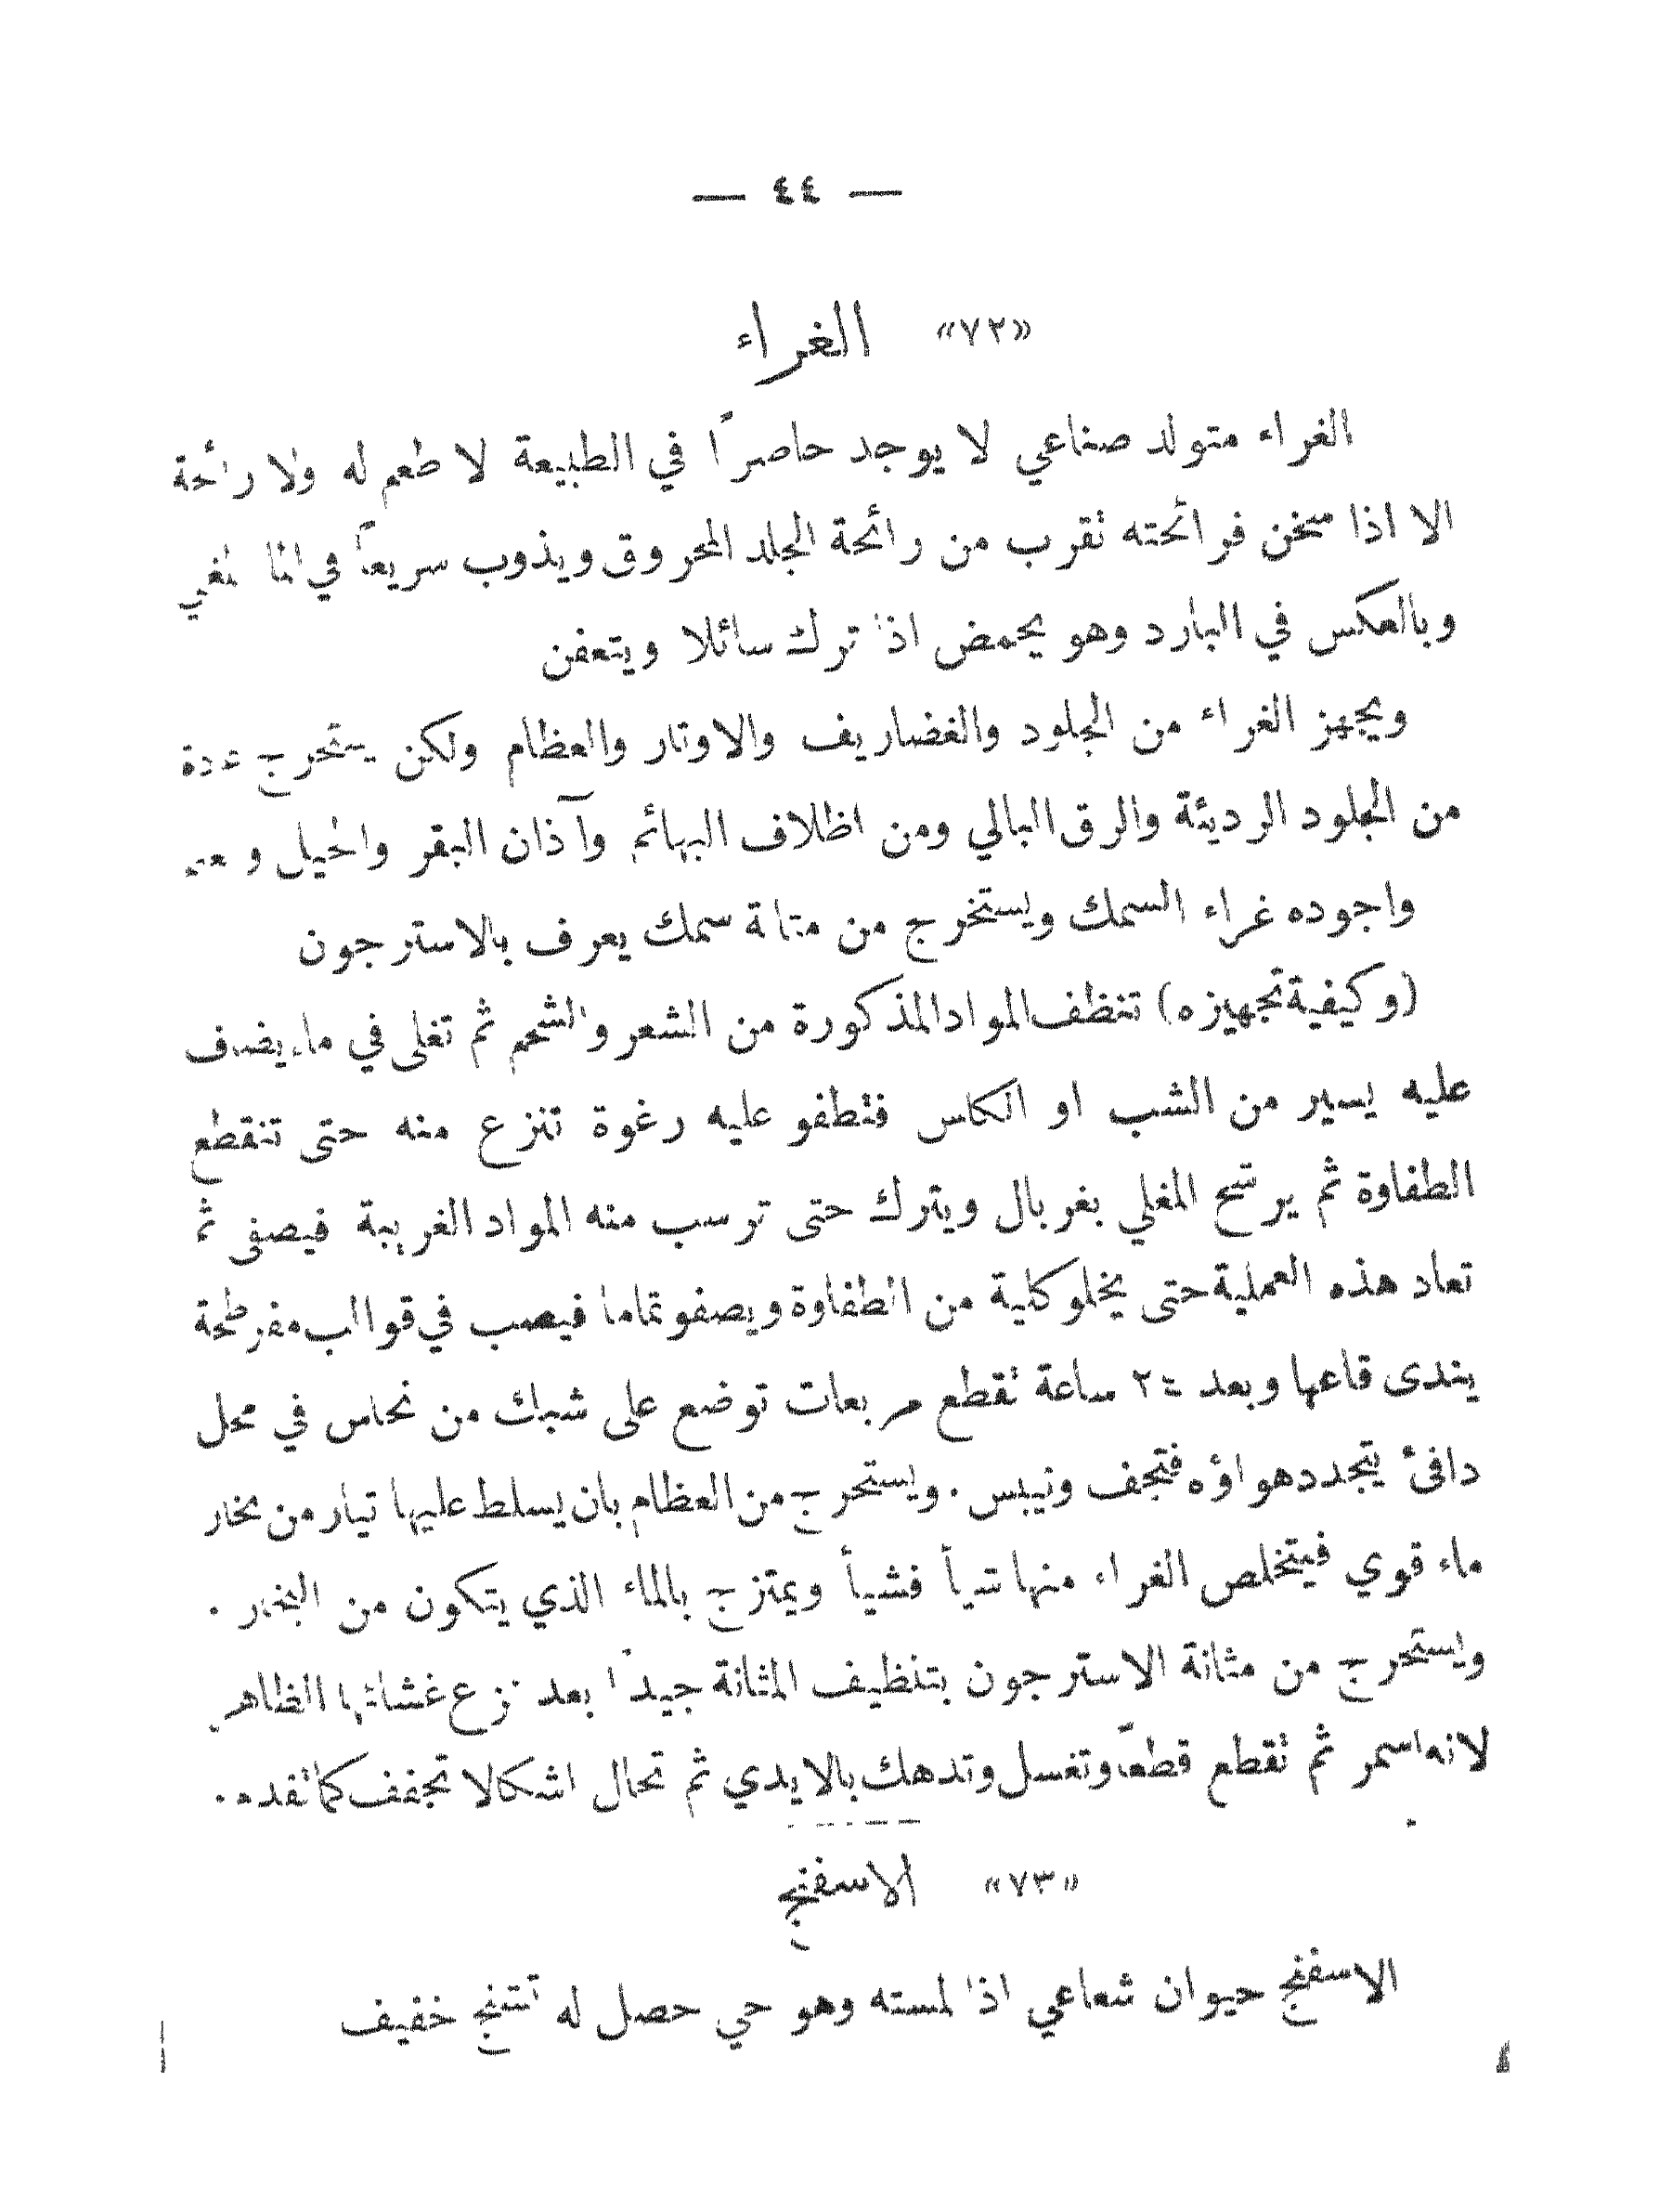 — ٤٤ —
«٧٢» الغراء
الغراء متولد صناعي لا يوجد حاصرًا في الطبيعة لا طعم له ولا رائحة
الا اذا سخن فرائحته تقرب من رائحة الجلد المحروق ويذوب سريعاً في الماء المغلي
وبالعكس في البارد وهو يحمض اذا ترك سائلا ويتعفن
ويجهز الغراء من الجلود والغضاريف والاوتار والعظام ولكن يستخرج عادة
من الجلود الرديئة والرق البالي ومن اظلاف البهائم وآذان البقر والخيل و
واجوده غراء السمك ويستخرج من مثانة سمك يعرف بالاسترجون
(وكيفية تجهيزه) تنظف المواد المذكورة من الشعر والشحم ثم تغلى في ماء يضاف
عليه يسير من الشب او الكاس فتطفو عليه رغوة تنزع منه حتى تنقطع
الطفاوة ثم يرشح المغلي بغربال ويترك حتى ترسب منه المواد الغريبة فيصفى ثم
تعاد هذه العملية حتى يخلو كلية من الطفاوة ويصفو تماما فيصب في قوالب مفرطحة
يندى قاعها وبعد ٢٤ ساعة تقطع مربعات توضع على شباك من نحاس في محل
دافئ يتجدد هواؤه فتجف وتيبس . ويستخرج من العظام بان يسلط عليها تيار من بخار
ماء قوي فيتخلص الغراء منها شيأ فشيأ ويمتزج بالماء الذي يتكون من البخار .
ويستخرج من مثانة الاسترجون بتنظيف المثانة جيدًا بعد نزع غشائها الظاهر
لانه اسمر ثم تقطع قطعاً وتغسل وتدهك بالايدي ثم تحال اشكالا تجفف كما تقدم .
«٧٣» الاسفنج
الاسفنج حيوان شعاعي اذا لمسته وهو حي حصل له تشنج خفيف